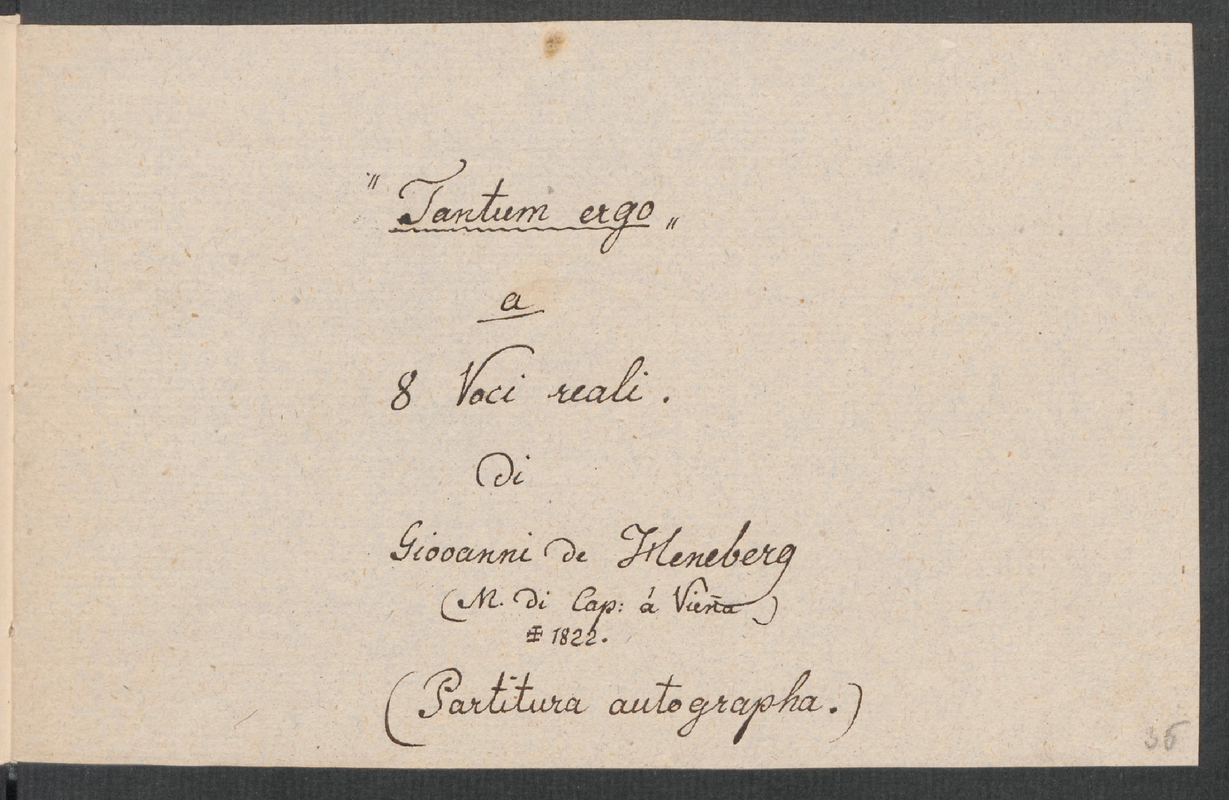 " Tantum ergo "
a
8 Voci reali.
di
Giovanni de Heneberg
(M. di Cap: á Vien̄a)
‡ 1822.
(Partitura autographa.)
35